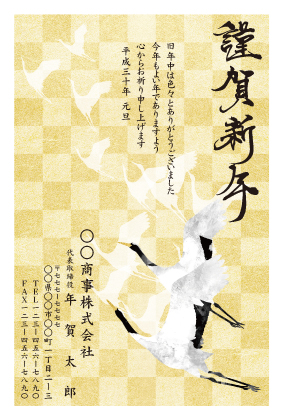 謹賀新年
旧年中は色々とありがとうございました
今年もよい年でありますよう
心からお祈り申し上げます
平成三十年 元旦
〇〇商事株式会社
代表取締役 年賀太郎
〒七七七-七七七七
〇〇県〇〇市〇〇町一丁目二-三
TEL 一二三-四五六-七八九〇
FAX 一二三-四五六-七八九〇